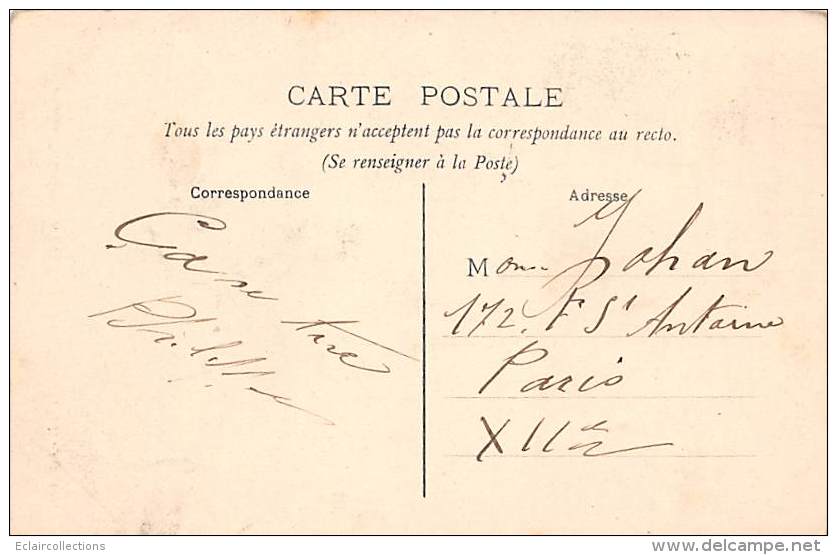 CARTE POSTALE
Tous les pays étrangers n'acceptent pas la correspondance au recto.
(Se renseigner à la Poste)
Correspondance
Ça se tire
Philippe
Adresse
Mons Johan
172. F St Antoine
Paris
XIIe
Eclaircollections
www.delcampe.net